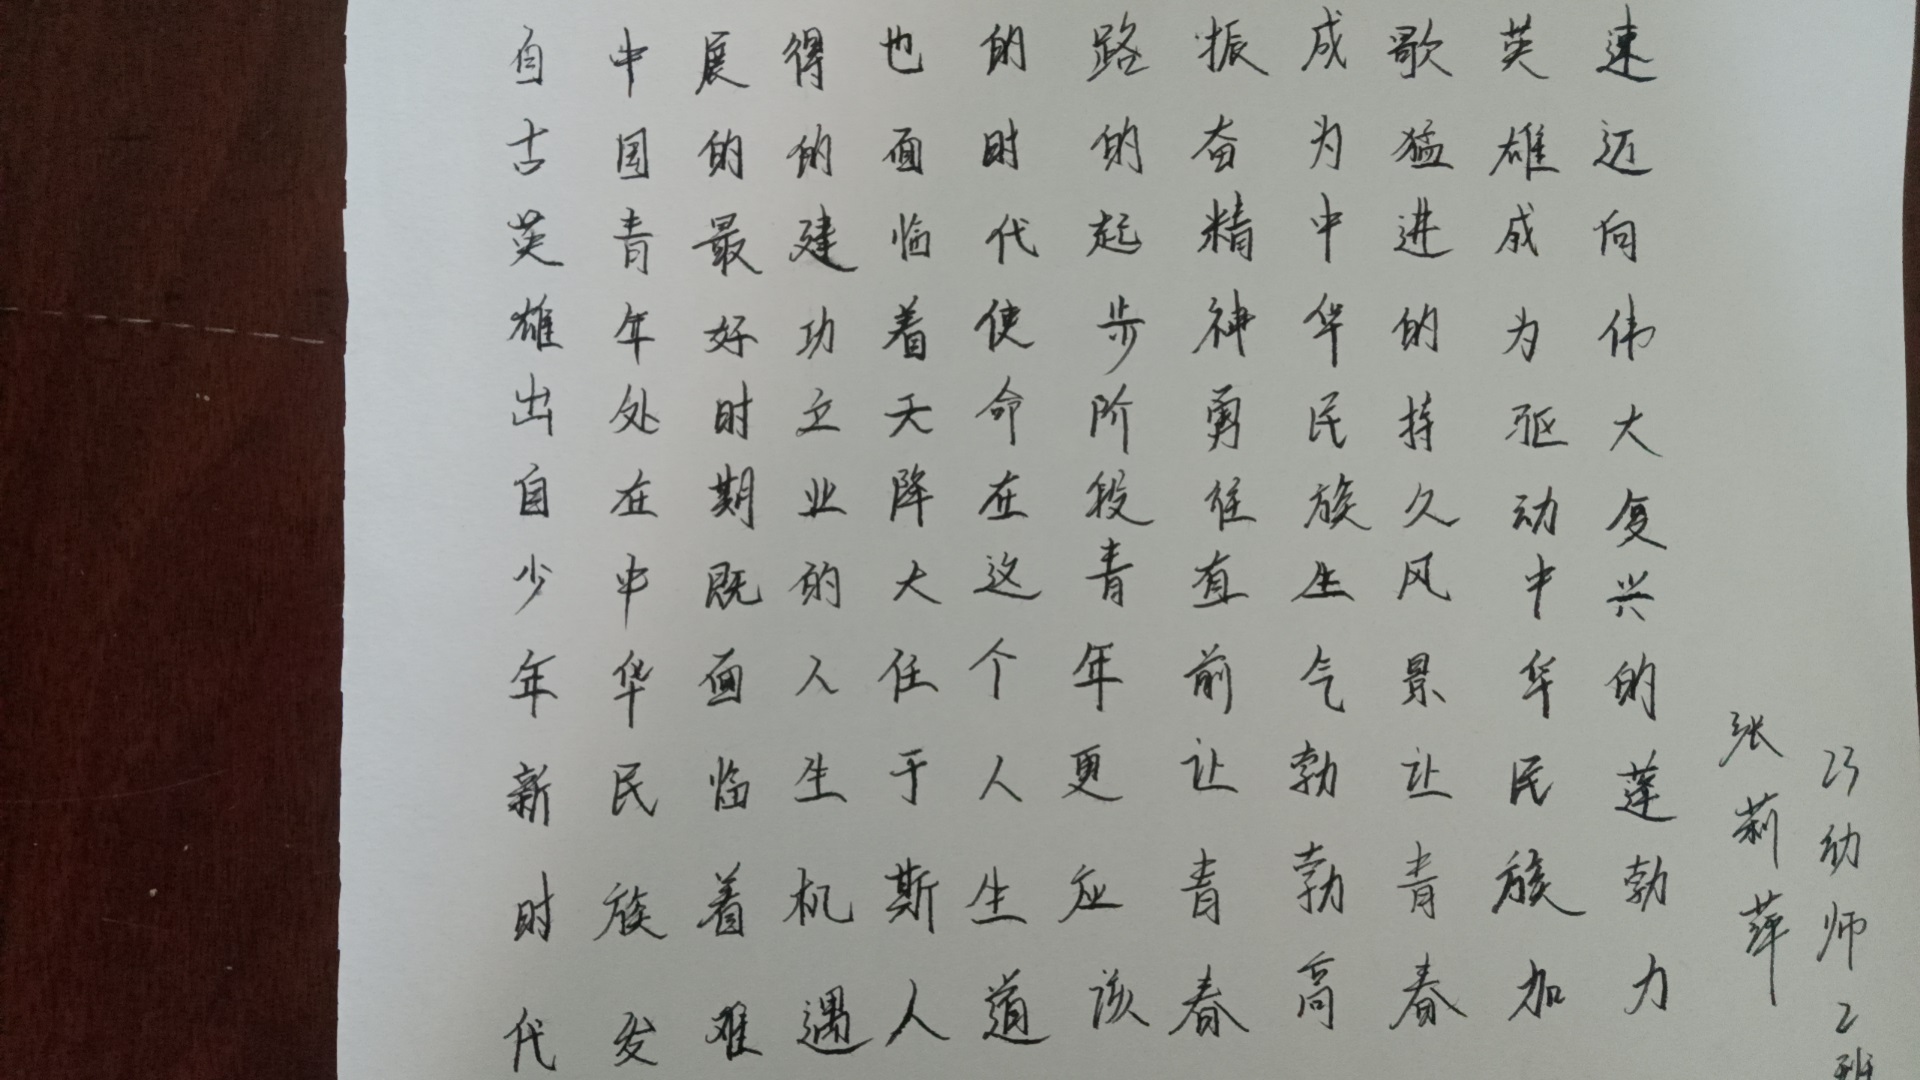 自古英雄出自少年新时代
中国青年处在中华民族发
展的最好时期既面临着难
得的建功立业的人生机遇
也面临着天降大任于斯人
的时代使命在这个人生道
路的起步阶段青年更应该
振奋精神勇往直前让青春
成为中华民族生气勃勃高
歌猛进的持久风景让青春
英雄成为驱动中华民族加
速迈向伟大复兴的蓬勃力
张莉萍
23幼师2班